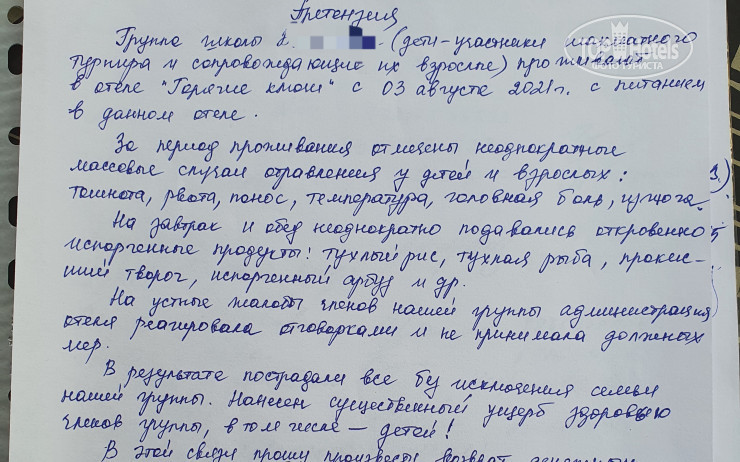 Претензия
Группа школы (дети-участники шахматного
турнира и сопровождающие их взрослые) проживает
в отеле "Горячие ключи" с 03 августа 2021г. с питанием
в данном отеле.
За период проживания отмечены неоднократные
массовые случаи отравления у детей и взрослых:
тошнота, рвота, понос, температура, головная боль, изжога.
1)
На завтрак и обед неоднократно подавались откровенно
испорченные продукты: тухлый рис, тухлая рыба, прокис-
ший творог, испорченный арбуз и др.
На устные жалобы членов нашей группы администрация
отеля реагировала отговорками и не принимала должных
мер.
В результате пострадали все без исключения семьи
нашей группы. Нанесен существенный ущерб здоровью
членов группы, в том числе — детей!
В этой связи прошу произвести возврат
TopHotels
ФОТО ТУРИСТА